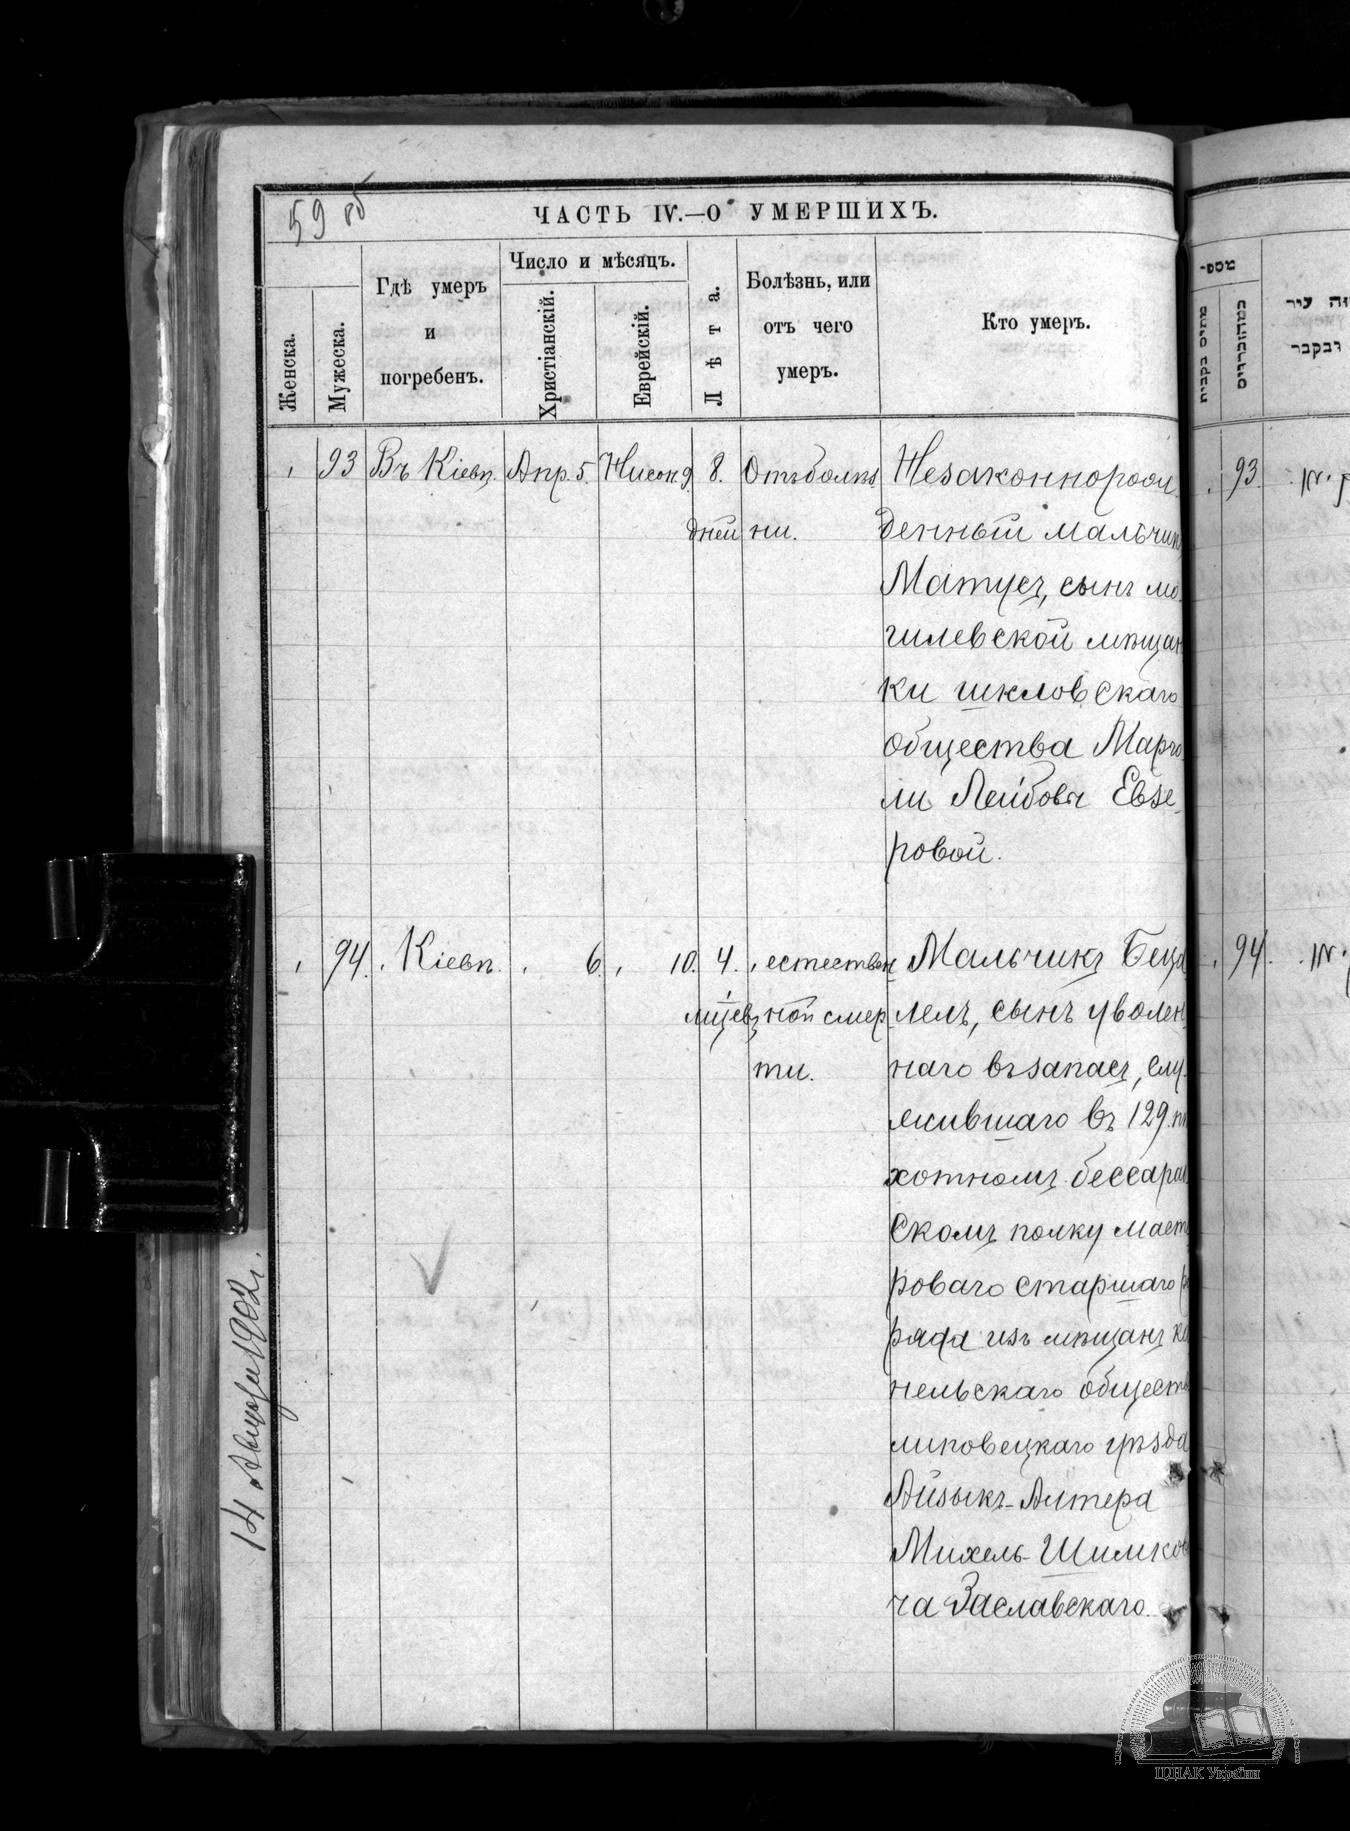 59 об
ЧАСТЬ IV.—О УМЕРШИХЪ.
Женска.
Мужеска.
Гдѣ умеръ
и
погребенъ.
Число и мѣсяцъ.
Христіанскій.
Еврейскій.
Лѣта.
Болѣзнь, или
отъ чего
умеръ.
Кто умеръ.
93 Въ Кіевѣ. Апр. 5. Нисон. 9. 8. Отъ болѣз Незаконнорож
дней ни. денный мальчик
Матусъ, сынъ мо
гилевской мѣщан
ки шкловскаго
общества Марго
ли Лейбовы Евзе-
ровой.
94. Кіевѣ. 6. 10. 4. естествен Мальчикъ Беца
мѣсяц. ной смер лелъ, сынъ уволен
ти. наго въ запасъ, слу
жившаго въ 129. пѣ
хотномъ бессараб
скомъ полку масте
роваго старшаго ра
ряда изъ мѣщанъ ко
нельскаго обществ
липовецкаго уѣзда
Айзыкъ-Алтера
Михель-Шлимкови
ча Заславскаго.
14 1902 г.
מספר
93
94
ЦДІАК України